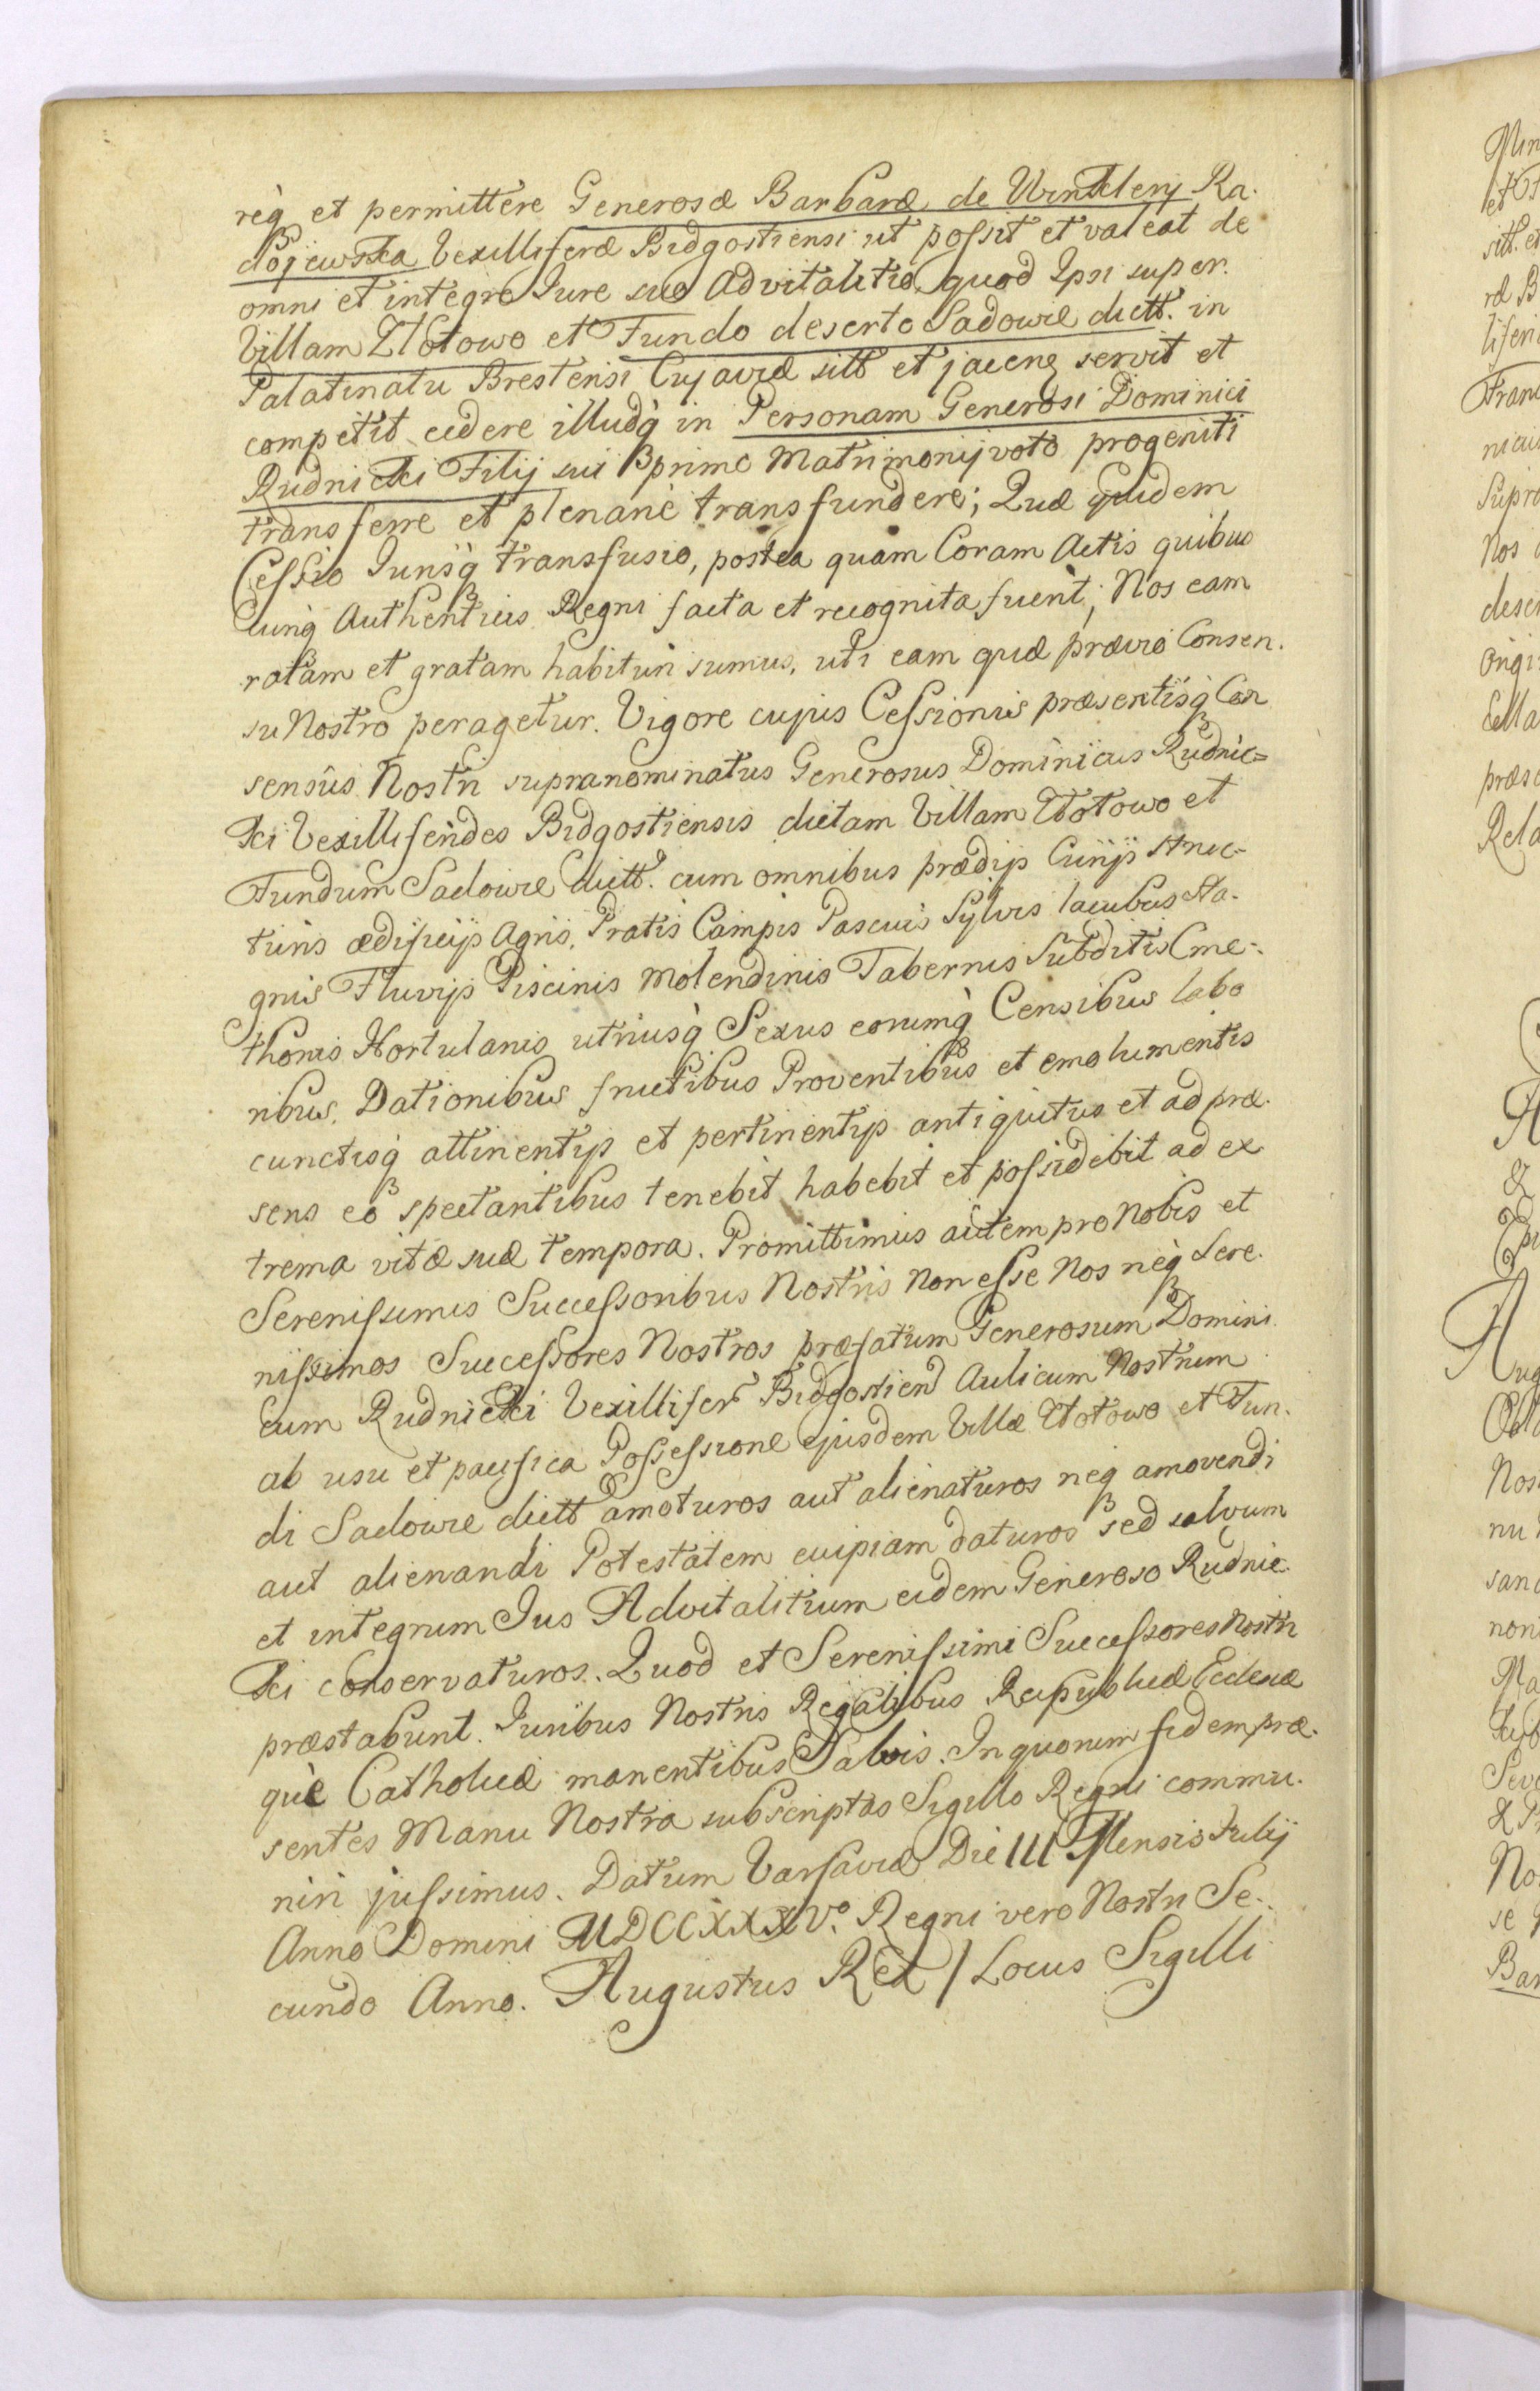 req et permittere Generosæ Barbaræ de Winklery Ra.
dojewska Vexilliferæ Bidgostiensi ut possit et valeat de
omni et integro Iure suo Advitalitio, quod Ipsi super.
Villam Zlotowo et Fundo deserto Sadowie dictt. in
Palatinatu Brestensi Cujaviæ sitt et jacenq servit et
competit cedere illudq in Personam Generosi Dominici
Rudnicki Filij sui primo Matrimonij voto progeniti
transferre et plenarie transfundere; Quæ quidem
Cessio Iurisq transfusio, postea quam Coram Actis quibus
cunq Authenticis Regni facta et recognita fuerit, Nos eam
ratam et gratam habituri sumus, uti eam quæ prævio Consen.
su Nostro peragetur. Vigore cujus Cessionis præsentisq Con
sensûs Nostri supranominatus Generosus Dominicus Rudnic=
ki Vexilliferides Bidgostiensis dictam Villam Złotowo et
Fundum Sadowie dictt. cum omnibus prædijs Curijs struc-
turis ædificijs Agris, Pratis Campis Pascuis Sylvis lacubus Sta-
gnis Fluvijs Piscinis Molendinis Tabernis Subditis Cme-
thonis Hortulanis utriusq Sexus eorumq Censibus labo
ribus, Dationibus fructibus Proventibus et emolumentis
cunctisq attinentijs et pertinentijs antiquitus et ad præ.
sens eo spectantibus tenebit habebit et possidebit ad ex
trema vitæ suæ tempora. Promittimus autem pro Nobis et
Serenissimis Successoribus Nostris non esse Nos neq Sere.
nissimos Successores Nostros præfatum Generosum Domini.
cum Rudnicki Vexillifer Bidgostien Aulicum Nostrum
ab usu et pacifica Possessione ejusdem Villæ Złotowo et Fun.
di Sadowie dictt amoturos aut alienaturos neq amovendi
aut alienandi Potestatem cuipiam daturos sed salvum
et integrum Ius Advitalitium eidem Generoso Rudnic.
ki conservaturos. Quod et Serenissimi Successores Nostri
præstabunt. Iuribus Nostris Regalibus Reipublicæ Ecclesiæ
què Catholicæ manentibus Salvis. In quorum fidem præ.
sentes Manu Nostra subscriptas Sigillo Regni commu.
niri jussimus. Datum Varsaviæ Die III Mensis Julij
Anno Domini MDCCXXXVo. Regni vero Nostri Se-
cundo Anno. Augustus Rex / Locus Sigilli